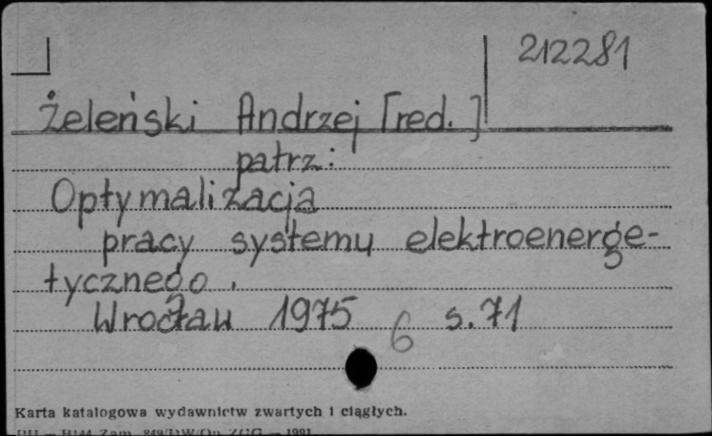 212281
Żeleński Andrzej [red.]
patrz:
Optymalizacja
pracy systemu elektroenerge-
tycznego.
Wrocław 1975 6 s. 71
Karta katalogowa wydawnictw zwartych i ciągłych.